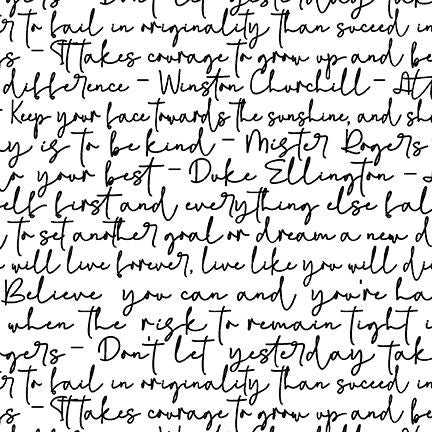 Don't let yesterday tak
r to fail in originality than succeed in
s - It takes courage to grow up and be
difference - Winston Churchill - Att
Keep your face towards the sunshine, and sh
y is to be kind - Mister Rogers
o your best - Duke Ellington -
elf first and everything else fal
to set another goal or dream a new d
will live forever, live like you will di
Believe you can and you're ha
when the risk to remain tight i
gers - Don't let yesterday tak
r to fail in originality than succeed in
s - It takes courage to grow up and be
difference - Winston Churchill - Att